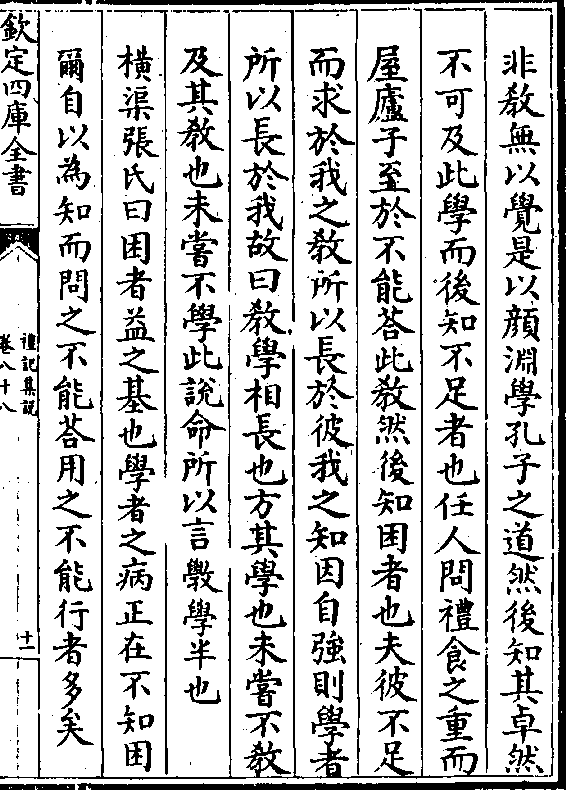 非教無以覺是以顔淵學孔子之道然後知其卓然
不可及此學而後知不足者也任人問禮食之重而
屋廬子至於不能荅此教然後知困者也夫彼不足
而求於我之教所以長於彼我之知因自強則學者
所以長於我故曰教學相長也方其學也未嘗不教
及其教也未嘗不學此說命所以言斆學半也
橫渠張氏曰困者益之基也學者之病正在不知困
爾自以為知而問之不能荅用之不能行者多矣
欽定四庫全書
禮記集說
卷八十八
十一